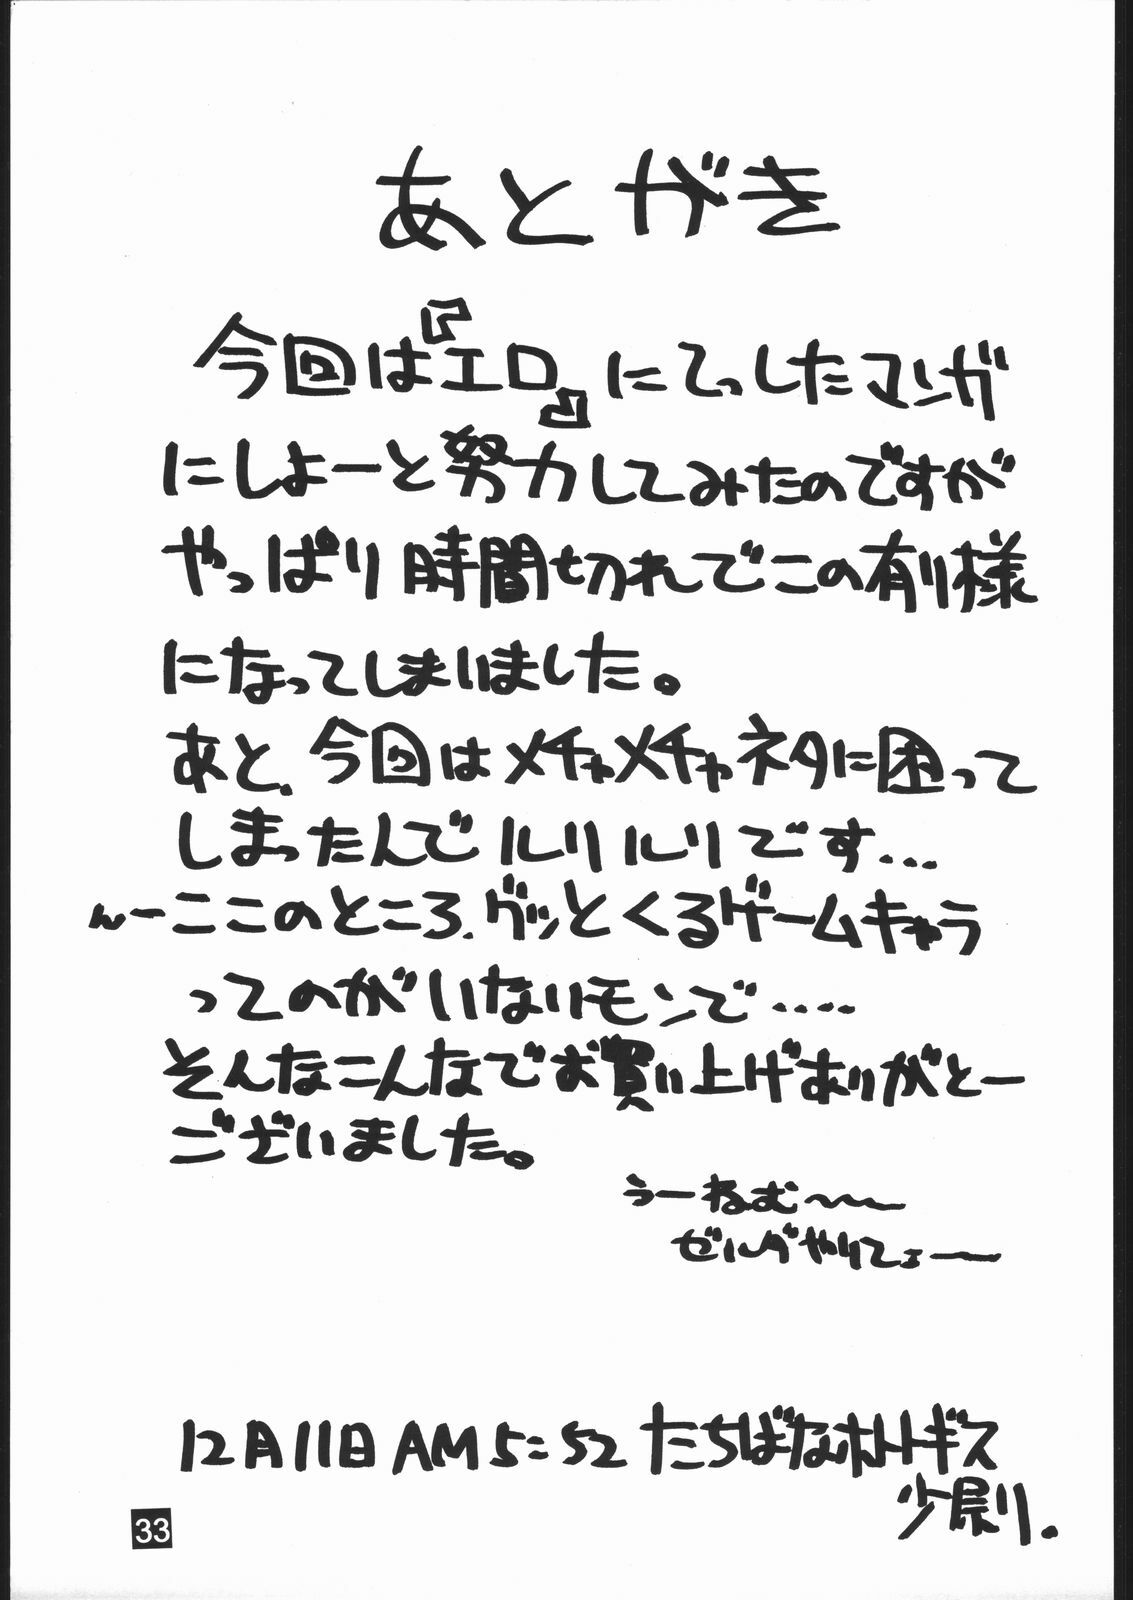 あとがき
今回は『エロ』にてっしたマンガ
にしよーと努力してみたのですが
やっぱり時間切れでこの有り様
になってしまいました。
あと、今回はメチャメチャネタに困って
しまったんでルリルリです…
んーここのところ、グッとくるゲームキャラ
ってのがいないモンで‥‥
そんなこんなでお買い上げありがとー
ございました。
うーねむ〜〜
ゼルダやりてェー
12月11日 AM 5:52 たちばなホトトギス
33